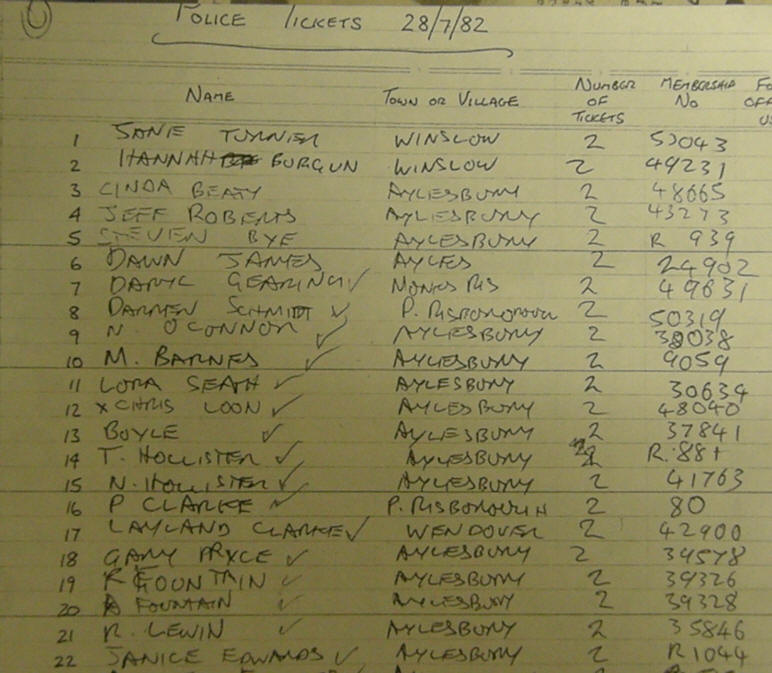 POLICE TICKETS 28/7/82
NAME TOWN OR VILLAGE NUMBER OF TICKETS MEMBERSHIP NO
1 JANE TURNER WINSLOW 2 53043
2 HANNAH BURGUN WINSLOW 2 49231
3 CINDA BEATY AYLESBURY 2 48665
4 JEFF ROBERTS AYLESBURY 2 43273
5 STEVEN BYE AYLESBURY 2 R 939
6 DAWN JAMES AYLES 2 24902
7 DARYL GEARING ✓ MONKS RIS 2 49631
8 DARREN SCHMIDT ✓ P. RISBOROROUGH 2 50319
9 N. O'CONNOR ✓ AYLESBURY 2 38038
10 M. BARNES ✓ AYLESBURY 2 9059
11 LORA SEATH ✓ AYLESBURY 2 30634
12 x CHRIS LOON ✓ AYLESBURY 2 48040
13 BOYLE ✓ AYLESBURY 2 37841
14 T. HOLLISTER ✓ AYLESBURY 2 R. 881
15 N. HOLLISTER ✓ AYLESBURY 2 41763
16 P CLARKE ✓ P. RISBOROUGH 2 80
17 LAYLAND CLARKE ✓ WENDOVER 2 42900
18 GARY PRYCE ✓ AYLESBURY 2 34578
19 R FOUNTAIN ✓ AYLESBURY 2 39326
20 A FOUNTAIN ✓ AYLESBURY 2 39328
21 R. LEWIN ✓ AYLESBURY 2 35846
22 JANICE EDWARDS ✓ AYLESBURY 2 R1044